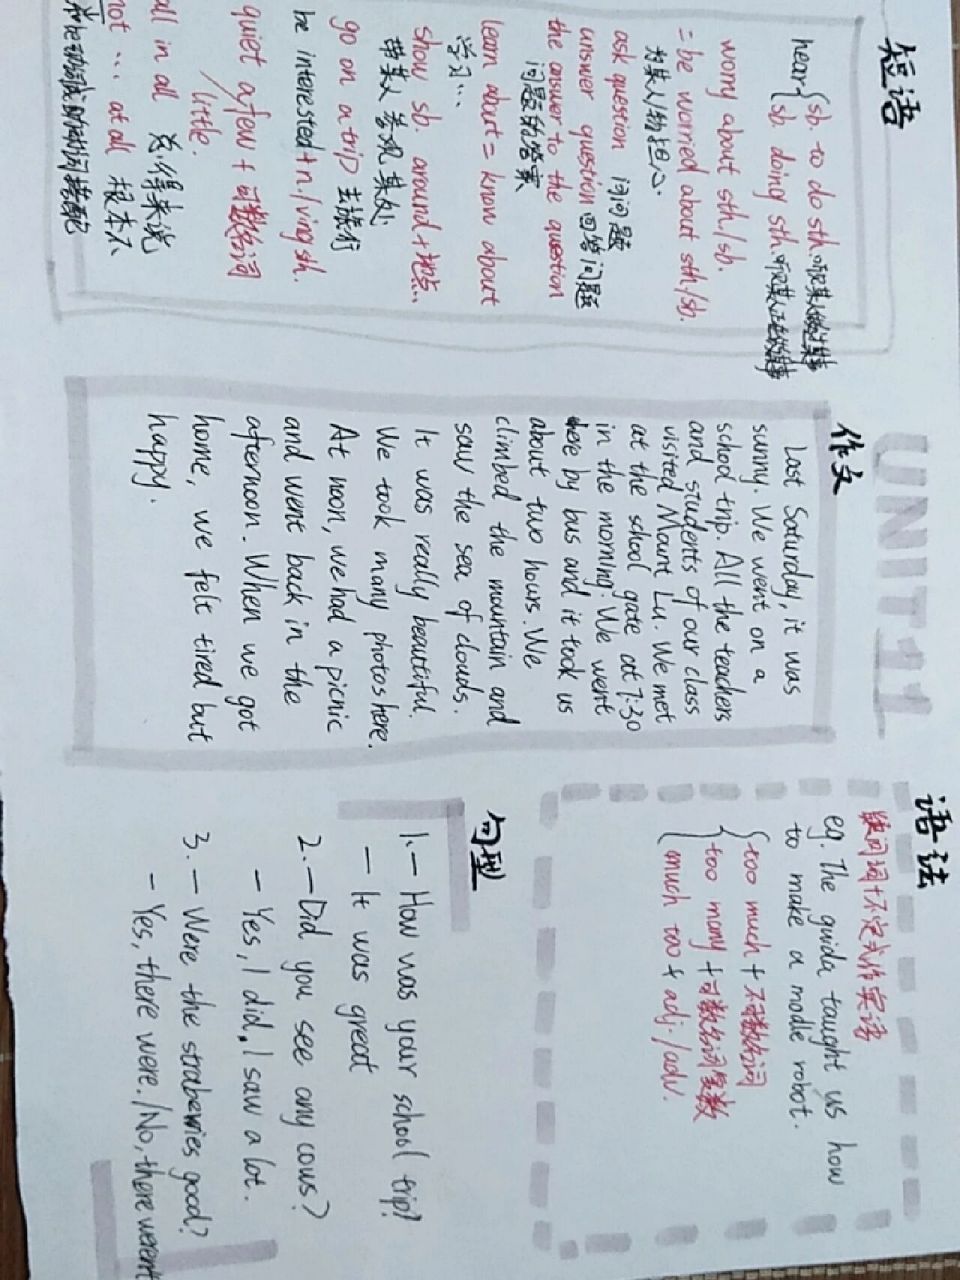 UNIT 11
短语
hear { sb. to do sth. 听见某人做过某事
sb. doing sth. 听见某人正在做某事
worry about sth/sb.
= be worried about sth/sb.
为某人/物担心.
ask question 问问题
answer question 回答问题
the answer to the question
问题的答案
learn about = know about
学习...
show sb. around + 地点..
带某人 参观 某处
go on a trip 去旅行
be interested + n. / ving sh.
quiet a few + 可数名词
/ little.
all in all 总得来说
not ... at all 根本不
作文
Last Saturday, it was
sunny. We went on a
school trip. All the teachers
and students of our class
visited Mount Lu. We met
at the school gate at 7:30
in the morning. We went
there by bus and it took us
about two hours. We
climbed the mountain and
saw the sea of clouds.
It was really beautiful.
We took many photos here.
At noon, we had a picnic
and went back in the
afternoon. When we got
home, we felt tired but
happy.
语法
疑问词+不定式作宾语
eg. The guida taught us how
to make a modle robot.
{ too much + 不可数名词
too many + 可数名词复数
much too + adj. / adv.
句型
1. — How was your school trip?
— It was great
2. — Did you see any cows?
— Yes, I did, I saw a lot.
3. — Were the straberries good?
— Yes, there were. / No, there weren't